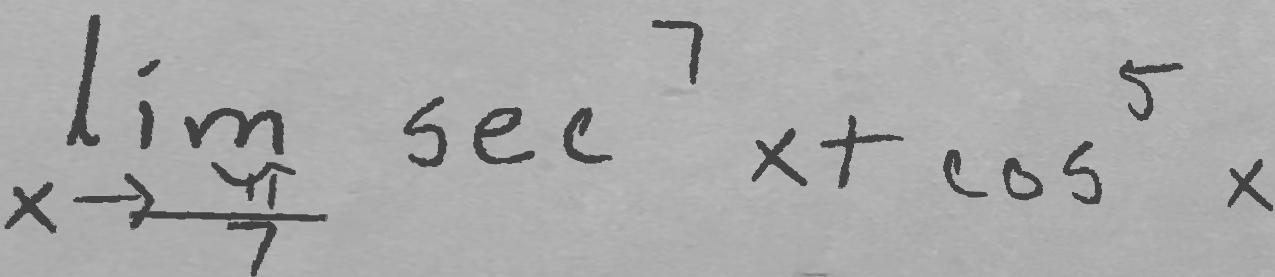 \lim_{x \to \frac{\pi}{7}} \sec^7 x + \cos^5 x